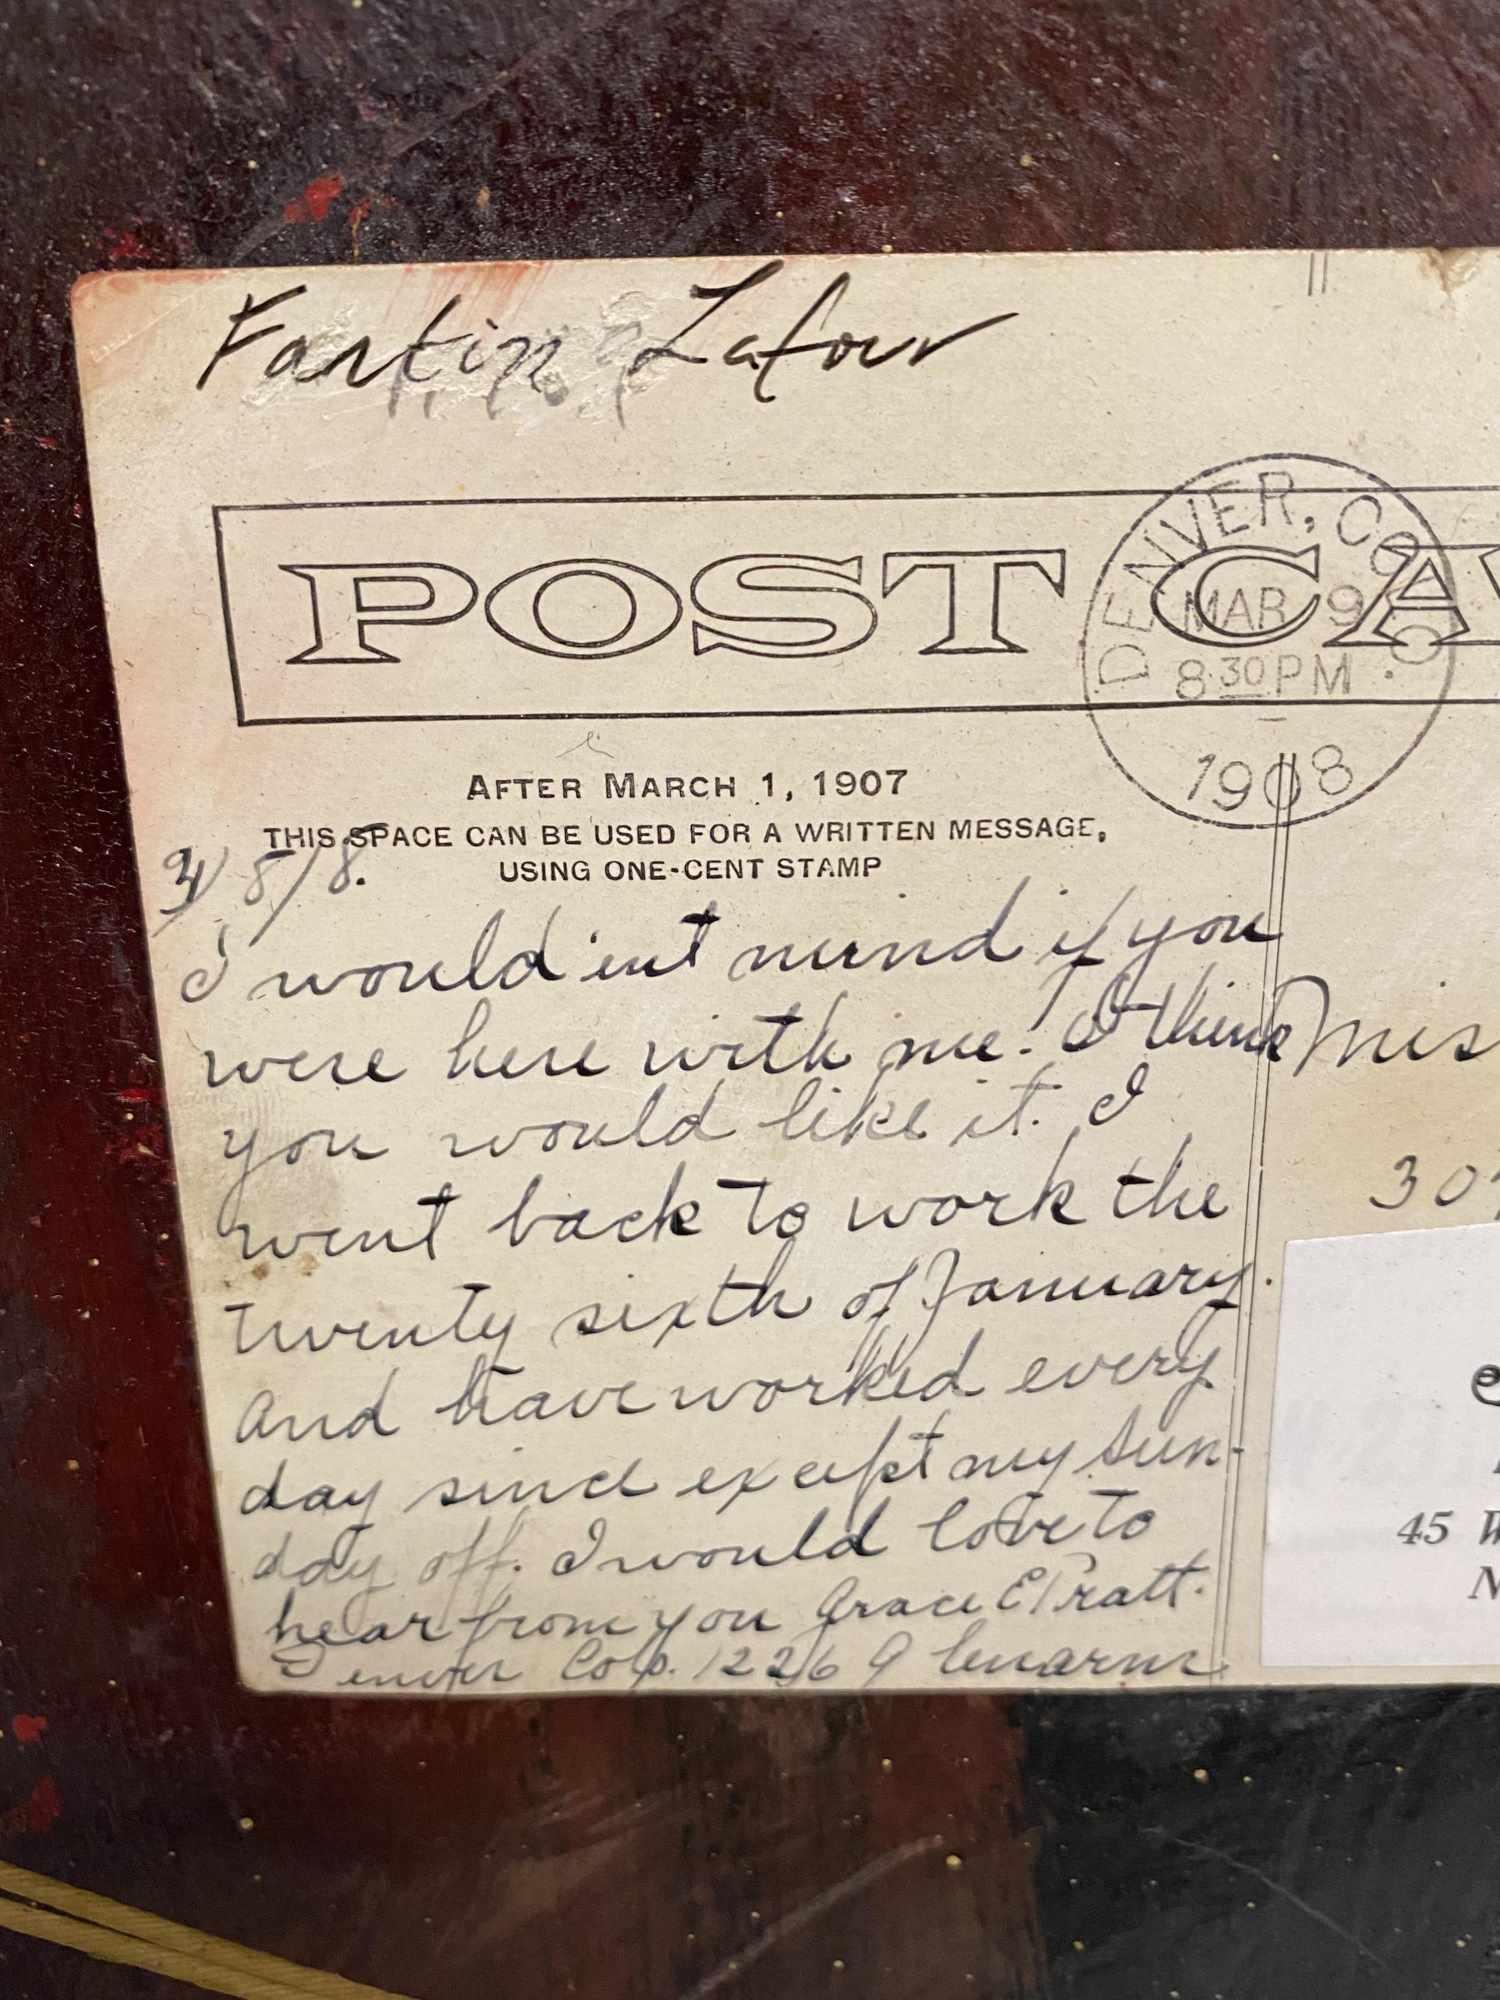 Fantin Lafour
POST CA
DENVER, COLO.
MAR 9
8 30 PM
1908
AFTER MARCH 1, 1907
THIS SPACE CAN BE USED FOR A WRITTEN MESSAGE,
USING ONE-CENT STAMP
3/8/8.
I would'ent mind if you
were here with me. I think
you would like it. I
went back to work the
twenty sixth of January.
and have worked every
day since except my Sun-
day off. I would love to
hear from you Grace E Pratt.
Denver Colo. 1226 9
Mis
30
45 W
N